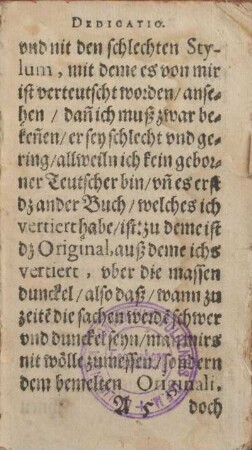 DEDICATIO.
vnd nit den schlechten Sty-
lum, mit deme es von mir
ist verteutscht worden/ anse-
hen / dañ ich muß zwar be-
keñen/ er sey schlecht vnd ge-
ring/ allweiln ich kein gebor-
ner Teutscher bin/ vñ es erst
dz ander Buch/ welches ich
vertiert habe/ ist: zu deme ist
dz Original, auß deme ichs
vertiert, vber die massen
dunckel/ also daß/ wann zu
zeitẽ die sachen werdẽ schwer
vnd dunckel seyn/ man mirs
nit wölle zumessen/ sondern
dem bemelten Originali.
A 5 doch